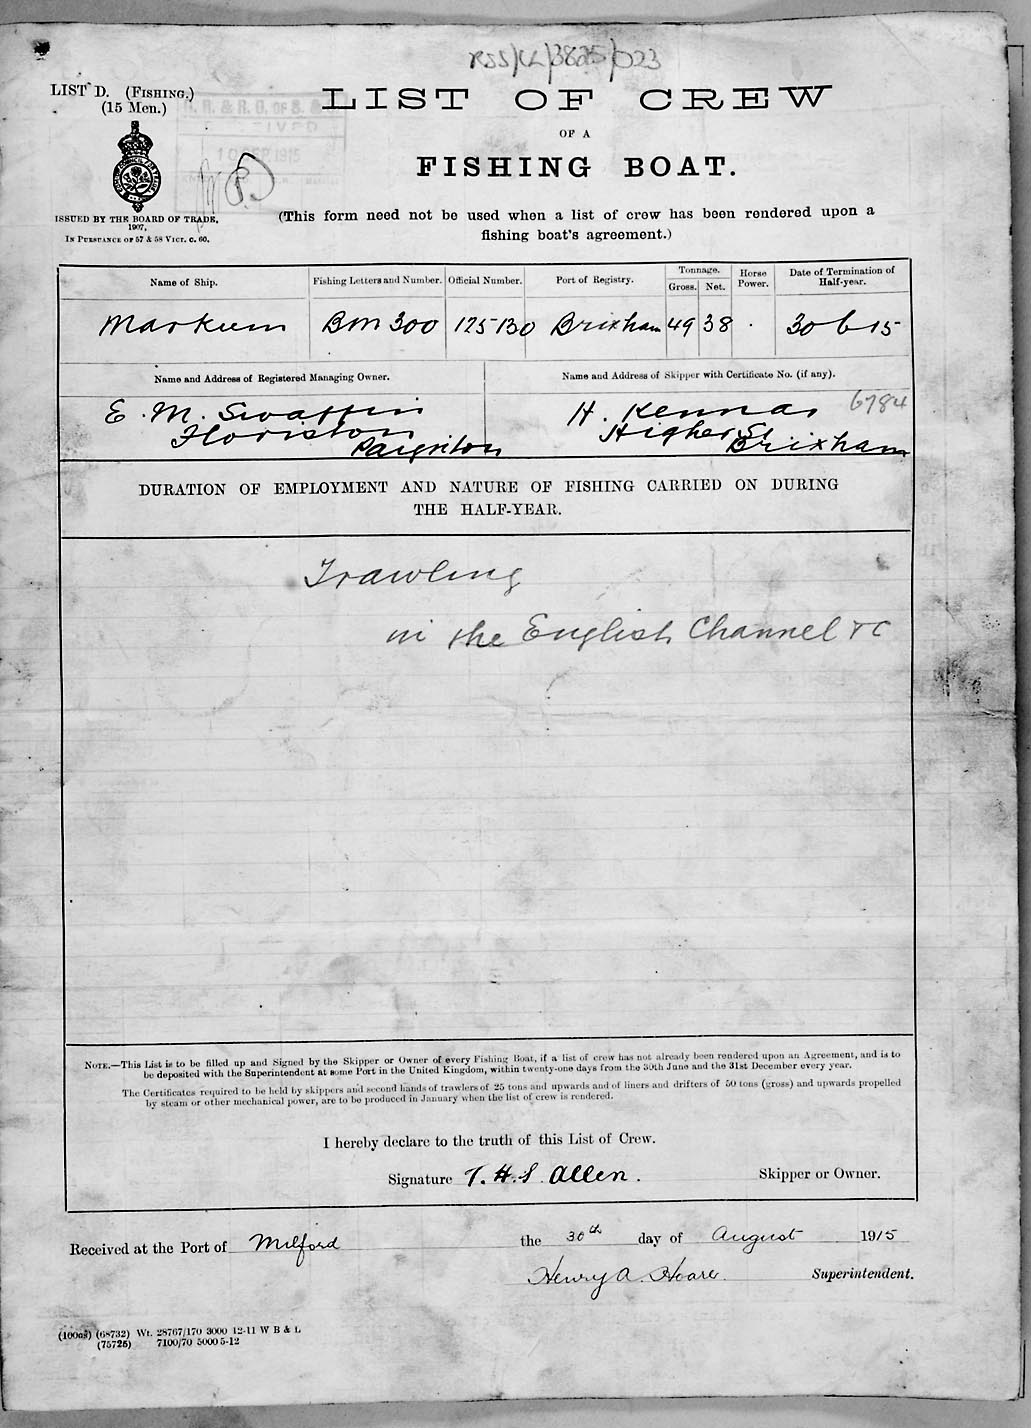 RSS/CL/3825/023
LIST D. (FISHING.)
(15 Men.)
LIST OF CREW
OF A
FISHING BOAT.
ISSUED BY THE BOARD OF TRADE,
1907,
IN PURSUANCE OF 57 & 58 VICT. C. 60.
(This form need not be used when a list of crew has been rendered upon a
fishing boat's agreement.)
Name of Ship. Fishing Letters and Number. Official Number. Port of Registry. Tonnage. Gross. Net. Horse Power. Date of Termination of Half-year.
Markum BM 300 125130 Brixham 49 38 30 6 15
Name and Address of Registered Managing Owner. Name and Address of Skipper with Certificate No. (if any).
E. M. Swaffin
Floriston
Paignton
H. Kennar 6784
Higher St
Brixham
DURATION OF EMPLOYMENT AND NATURE OF FISHING CARRIED ON DURING
THE HALF-YEAR.
Trawling
in the English Channel &c
NOTE.—This List is to be filled up and Signed by the Skipper or Owner of every Fishing Boat, if a list of crew has not already been rendered upon an Agreement, and is to
be deposited with the Superintendent at some Port in the United Kingdom, within twenty-one days from the 30th June and the 31st December every year.
The Certificates required to be held by skippers and second hands of trawlers of 25 tons and upwards and of liners and drifters of 50 tons (gross) and upwards propelled
by steam or other mechanical power, are to be produced in January when the list of crew is rendered.
I hereby declare to the truth of this List of Crew.
Signature T. H. S. Allen. Skipper or Owner.
Received at the Port of Milford the 30th day of August 1915
Henry A. Hoare. Superintendent.
(100as) (68732) Wt. 28767/170 3000 12-11 W B & L
(75725) 7100/70 5000 5-12